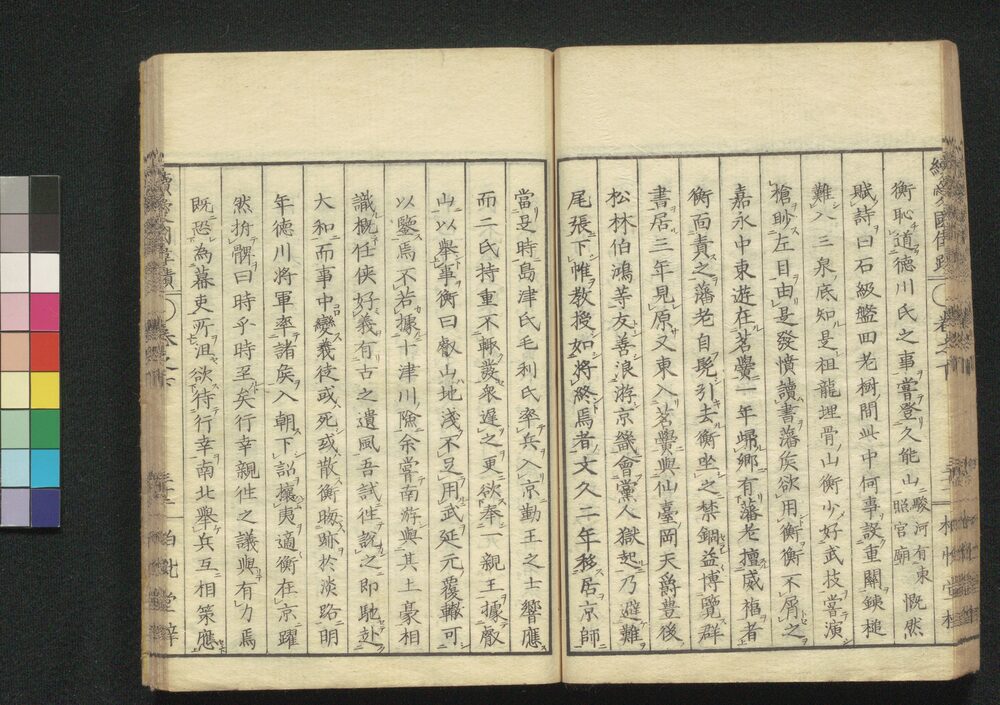 衡恥道德川氏之事嘗登久能山駿河有東照宮廟慨然
賦詩曰石級盤回老樹間此中何事設重關鍊槌
難入三泉底知是祖龍埋骨山衡少好武技嘗演
槍眇左目由是發憤讀書藩侯欲用衡衡不屑之
嘉永中東遊在茗黌二年歸鄉有藩老擅威福者
衡面責之藩老自髡引去衡坐之禁錮益博覽群
書居三年見原又東入茗黌與仙臺岡天爵豊後
松林伯鴻等友善浪游京畿會黨人獄起乃避難
尾張下帷教授如將終焉者文久二年移居京師
當是時島津氏毛利氏率兵入京勤王之士響應
而二氏持重不輙發衆遲之更欲奉一親王據叡
山以舉事衡曰叡山地淺不足用武延元覆轍可
以鑒焉不若據十津川險余嘗南游與其土豪相
識概任俠好義有古之遺風吾試徃說之即馳赴
大和而事中變義徒或死或散衡晦跡於淡路明
年德川將軍率諸矦入朝下詔攘夷適衡在京躍
然拊髀曰時乎時至矣行幸親征之議與有力焉
既恐為幕吏所沮欲待行幸南北舉兵互相策應